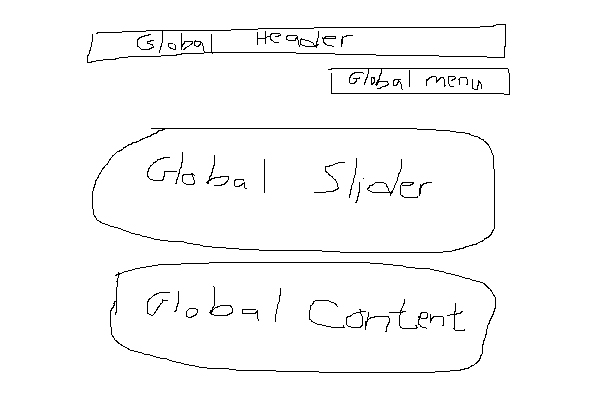 Global Header
Global menu
Global Slider
Global Content